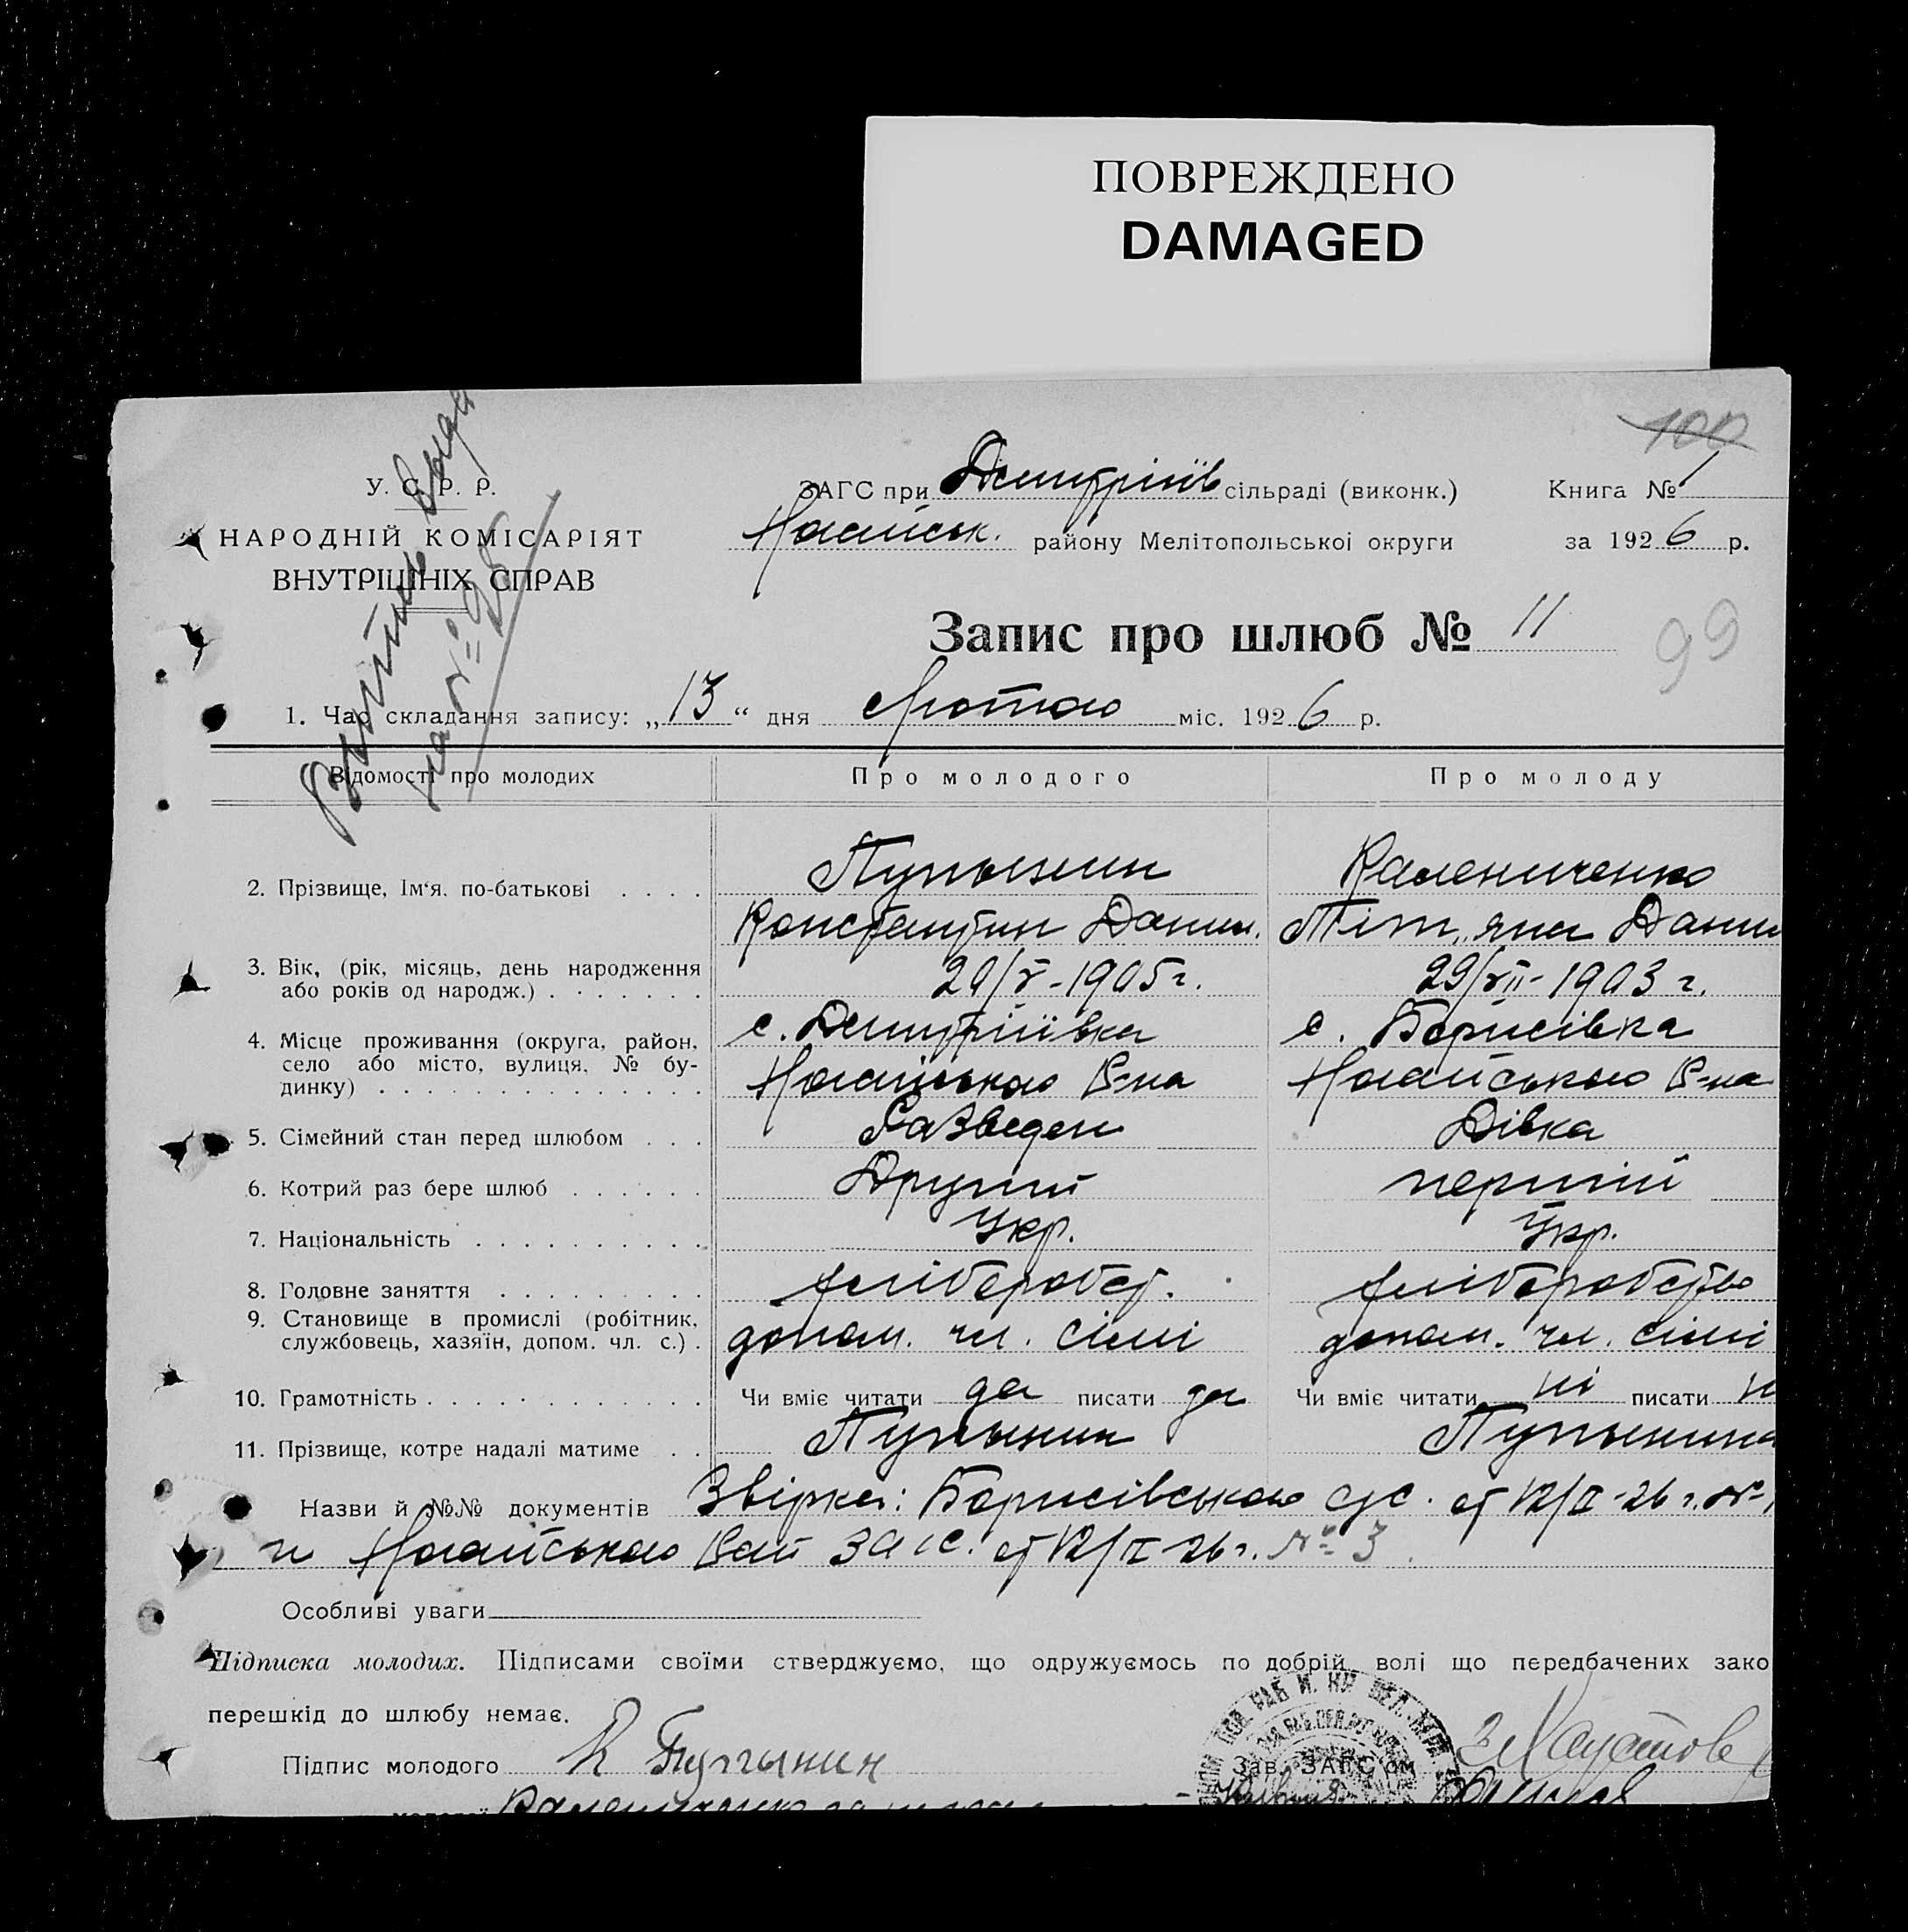 ПОВРЕЖДЕНО
DAMAGED
100
У. С. Р. Р.
НАРОДНІЙ КОМІСАРІЯТ
ВНУТРІШНІХ СПРАВ
ЗАГС при Дмитріїв сільраді (виконк.) Книга № 1
Ногайськ. району Мелітопольської округи за 1926 р.
Запис про шлюб № 11
99
1. Час складання запису: „13“ дня Лютого міс. 1926 р.
Відомості про молодих Про молодого Про молоду
2. Прізвище, Ім‘я, по-батькові Пупынин Калениченко
Константин Данил. Тіт,,яна Данил
3. Вік, (рік, місяць, день народження
або років од народж.) 20/V-1905 г. 29/VII-1903 г.
4. Місце проживання (округа, район, с. Дмитріївка с. Борисівка
село або місто, вулиця, № бу-
динку) Ногайського Р-на Ногайського Р-на
5. Сімейний стан перед шлюбом Разведен Дівка
6. Котрий раз бере шлюб Другий первій
7. Національність Укр. Укр.
8. Головне заняття хліборобст. хліборобство
9. Становище в промислі (робітник,
службовець, хазяїн, допом. чл. с.) допом. чл. сімі допом. чл. сімі
10. Грамотність Чи вміє читати да писати да Чи вміє читати ні писати н
11. Прізвище, котре надалі матиме Пупынин Пупынина
Назви й №№ документів Звірка: Борисівського с/с. от 12/II-26 г. №
и Ногайського Рай загс. от 12/II-26 г. № 3
Особливі уваги
Підписка молодих. Підписами своїми стверджуємо, що одружуємось по добрій волі що передбачених зако
перешкід до шлюбу немає.
Підпис молодого К Пупынин Зав. ЗАГС'ом
молодої Калениченко